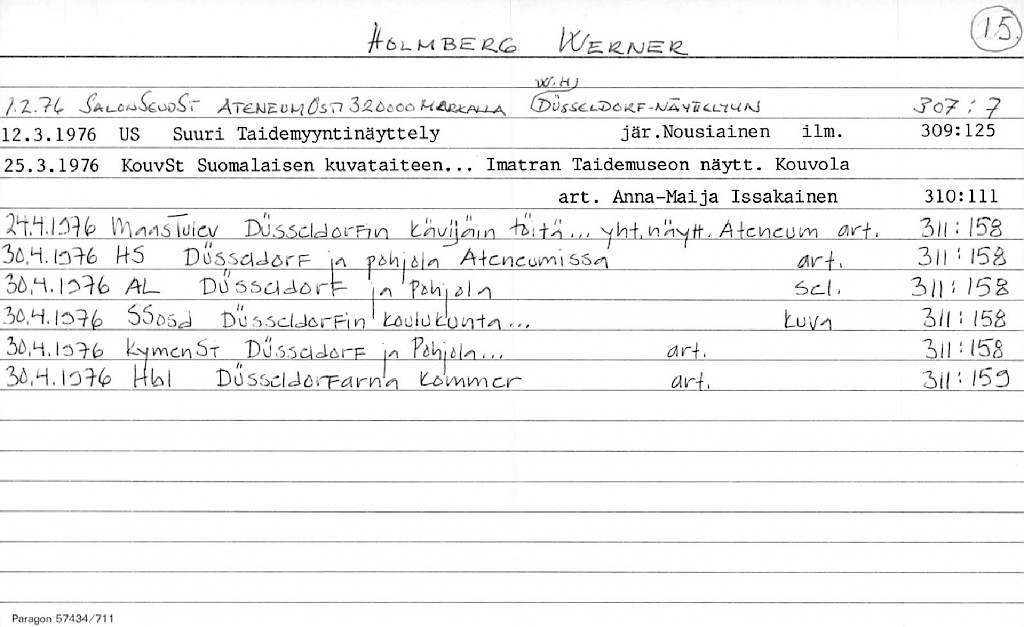 HOLMBERG WERNER 15.
W.H:
1.2.76 SALONSEUDST ATENEUM OSTI 320000 MARKALLA DÜSSELDORF-NÄYTTELYYN 307:7
12.3.1976 US Suuri Taidemyyntinäyttely jär.Nousiainen ilm. 309:125
25.3.1976 KouvSt Suomalaisen kuvataiteen... Imatran Taidemuseon näytt. Kouvola
art. Anna-Maija Issakainen 310:111
24.4.1976 MaasTulev Düsseldorfin kävijäin töitä... yht.näytt. Ateneum art. 311:158
30.4.1976 HS Düsseldorf ja pohjola Ateneumissa art. 311:158
30.4.1976 AL Düsseldorf ja Pohjola sel. 311:158
30.4.1976 SSosd Düsseldorfin koulukunta... kuva 311:158
30.4.1976 KymenST Düsseldorf ja Pohjola... art. 311:158
30.4.1976 Hbl Düsseldorfarna kommer art. 311:159
Paragon 57434/711